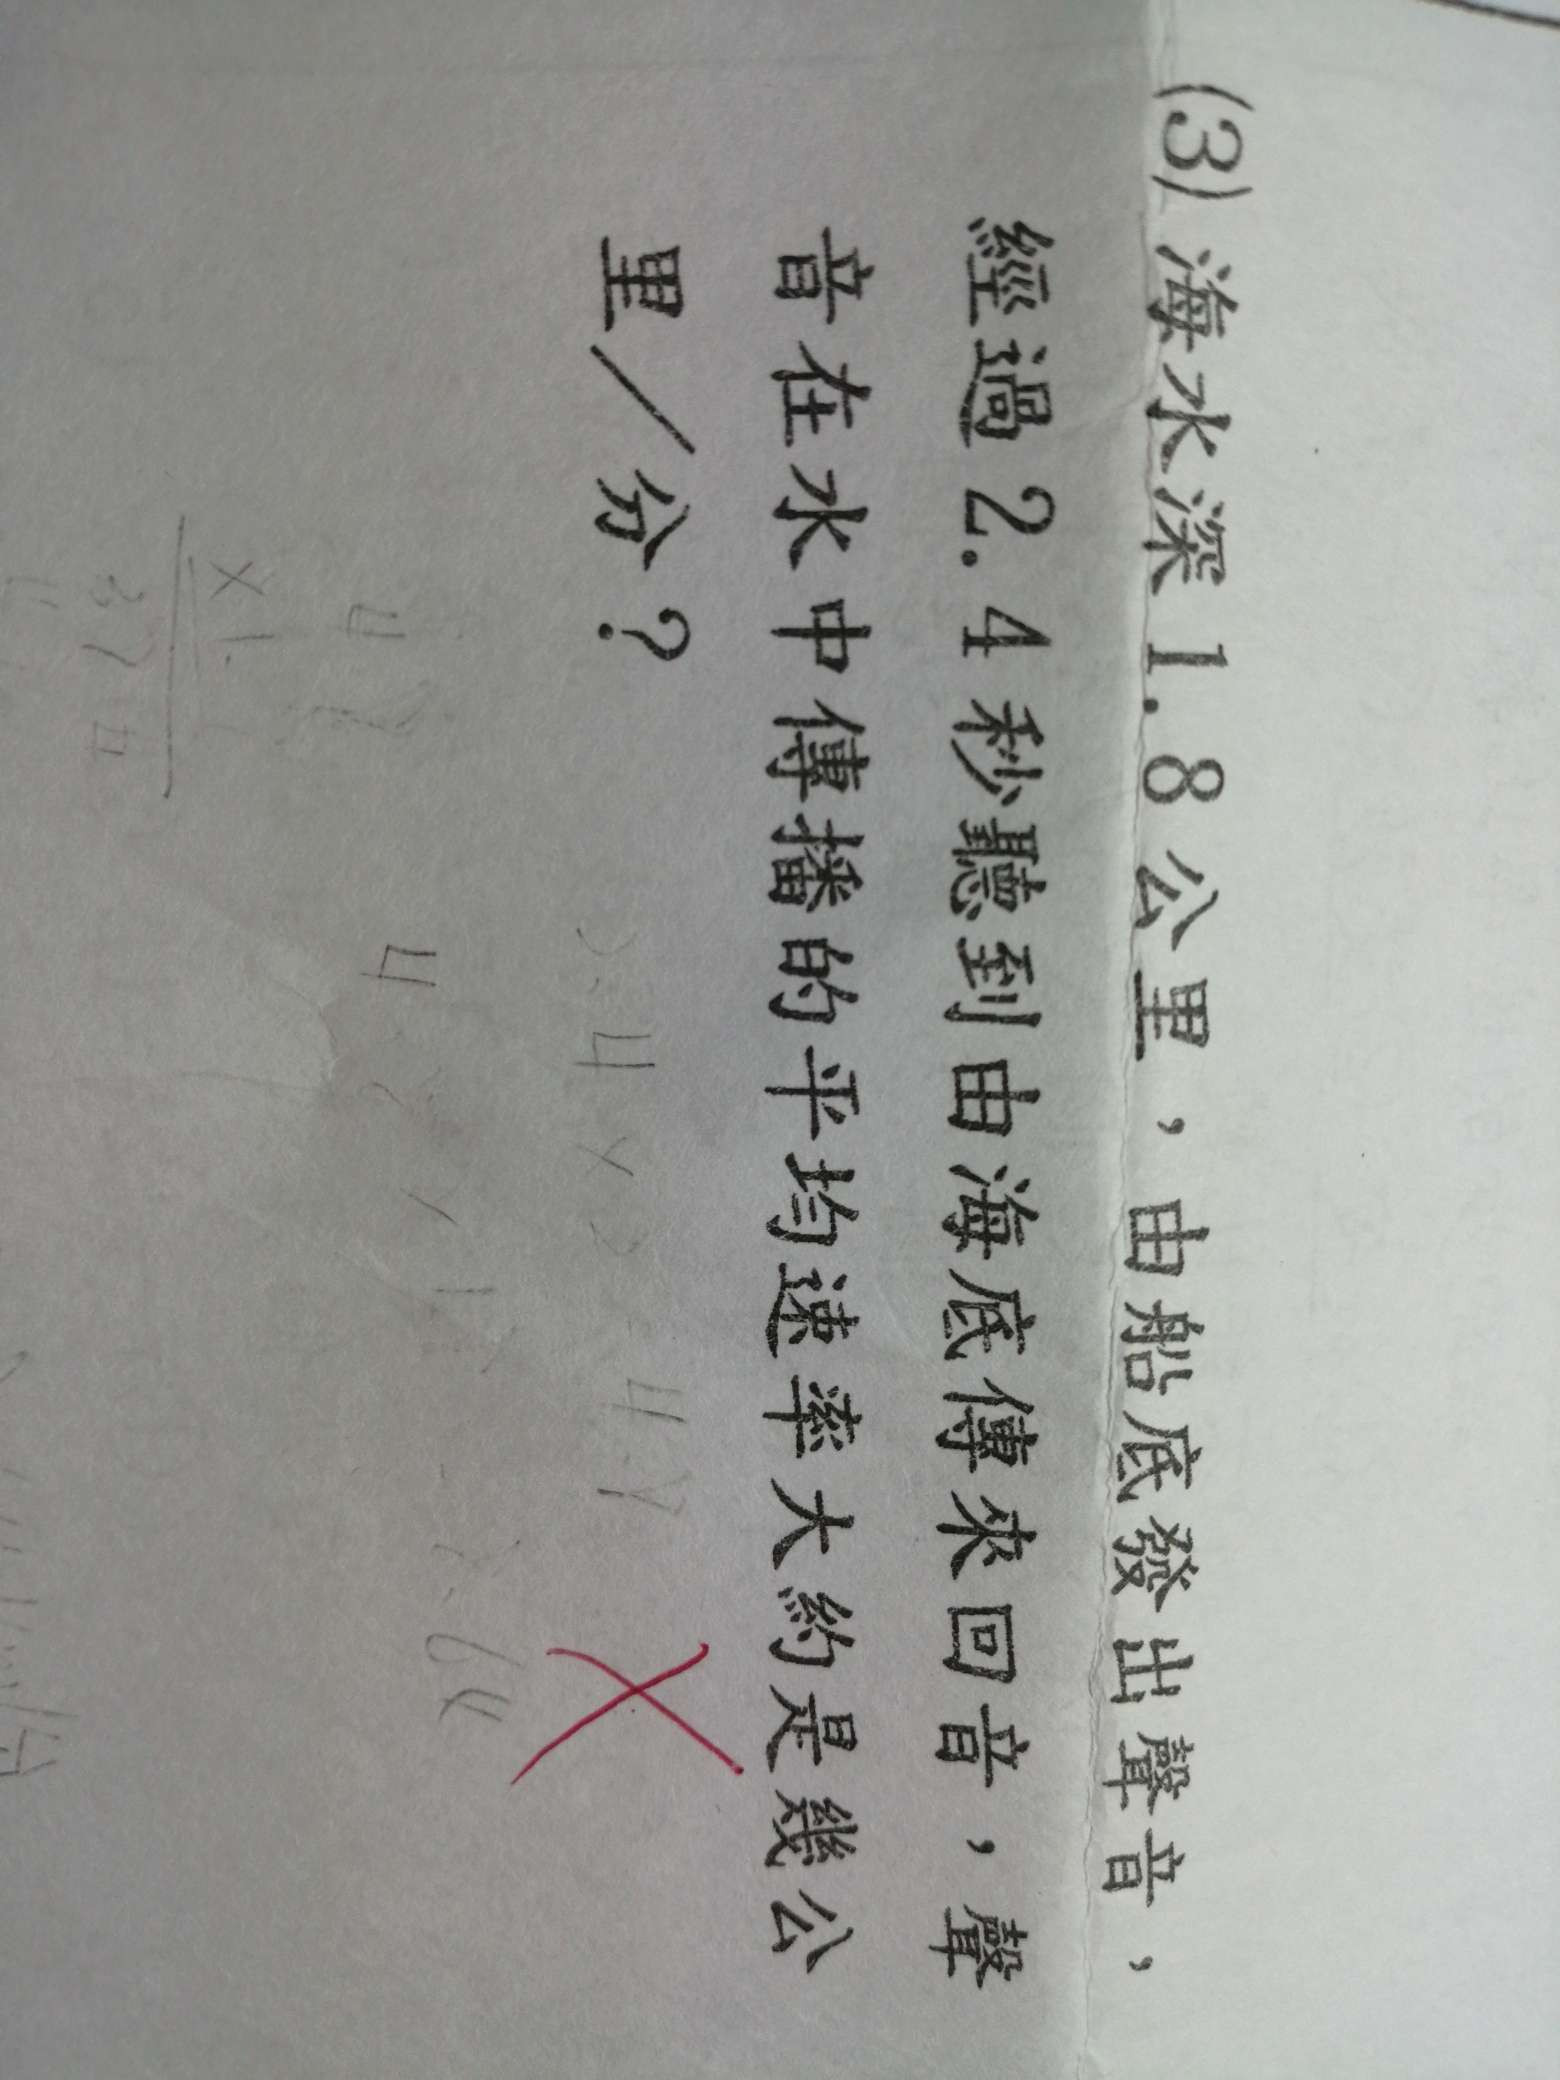 (3) 海水深1.8公里，由船底發出聲音，
經過2.4秒聽到由海底傳來回音，聲
音在水中傳播的平均速率大約是幾公
里／分？